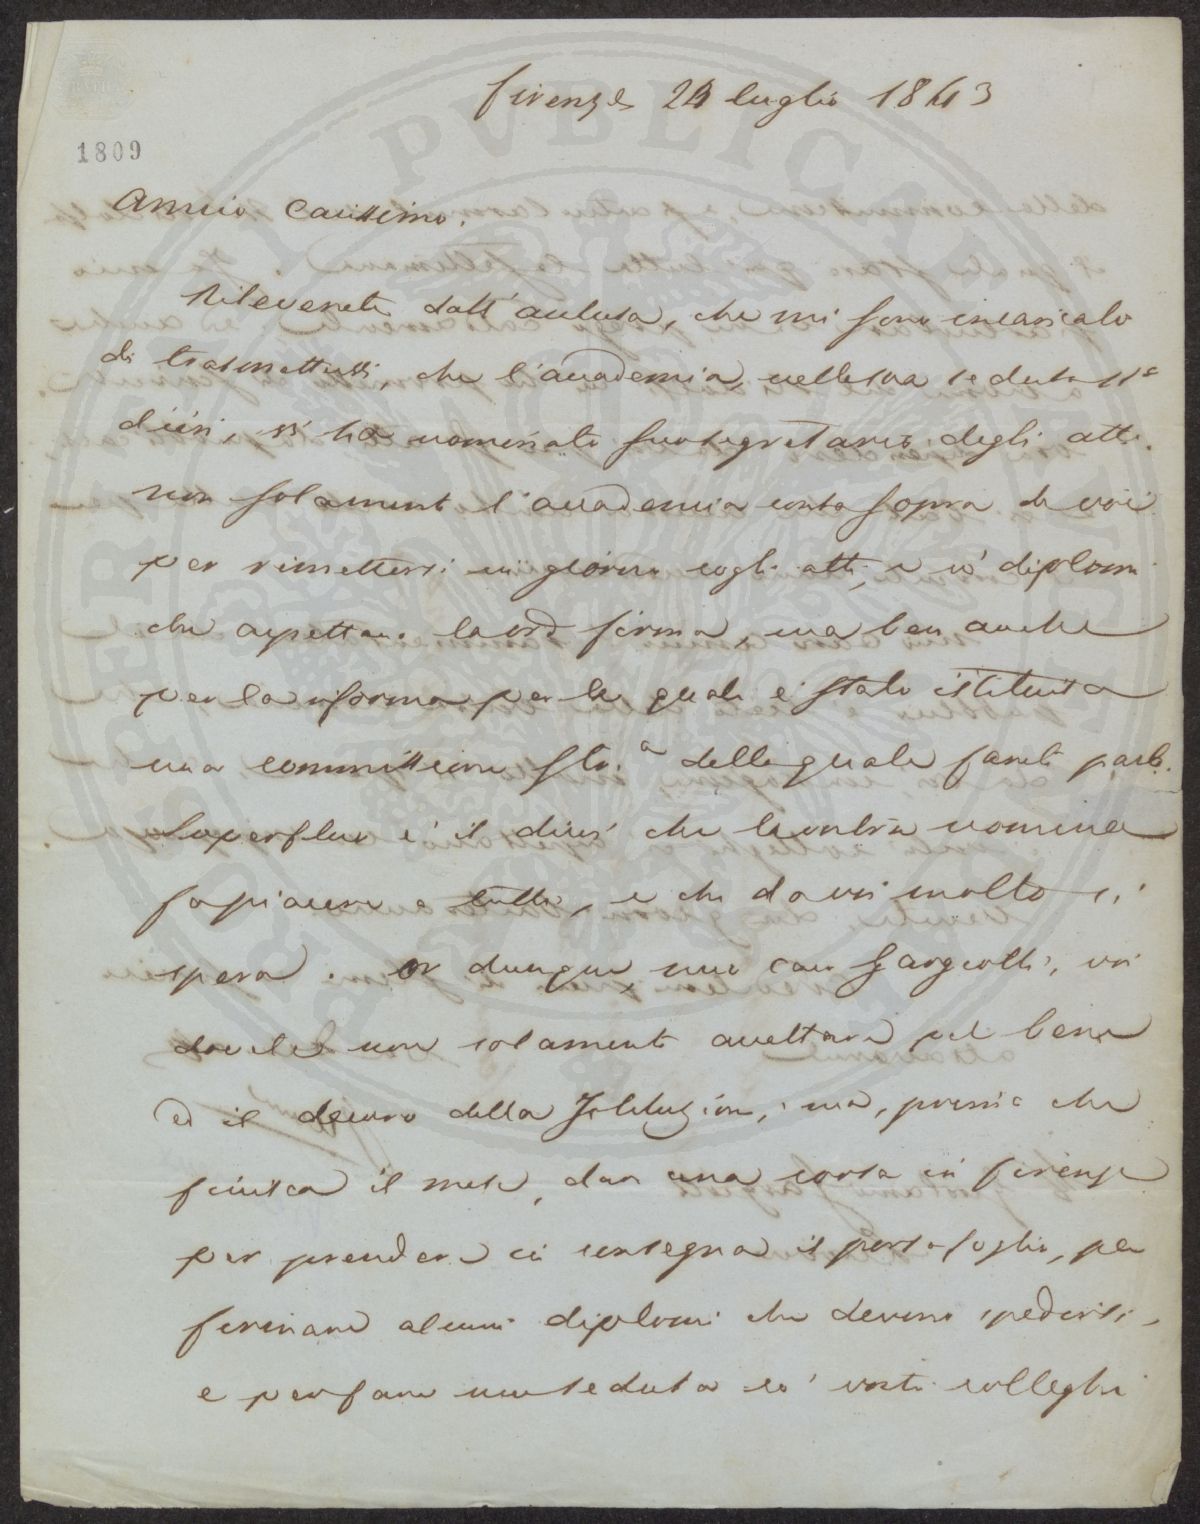 Firenze 24 luglio 1843
1809
Amico Carissimo.
Rileverete dall'acclusa, che mi sono incaricato
di trasmettervi, che l'accademia, nella sua seduta
d'ieri, vi ha nominato suo segretario degli atti.
Non solamente l'accademia conta sopra di voi
per rimettersi in giorno cogli atti, e co' diplomi
che aspettano la vostra firma, ma ben anche
per la riforma per la quale è stata istituita
una commissione della quale farete parte.
Superfluo è il dirvi che la vostra nomina
fa piacere a tutti, e che da voi molto si
spera. Or dunque mio caro Gargiolli, voi
dovete non solamente accettare pel bene
ed il decoro della Istituzione, ma, prima che
finisca il mese, dare una corsa in Firenze
per prendere in consegna il portafoglio, per
firmare alcuni diplomi che devono spedirsi,
e per fare una seduta co' vostri colleghi